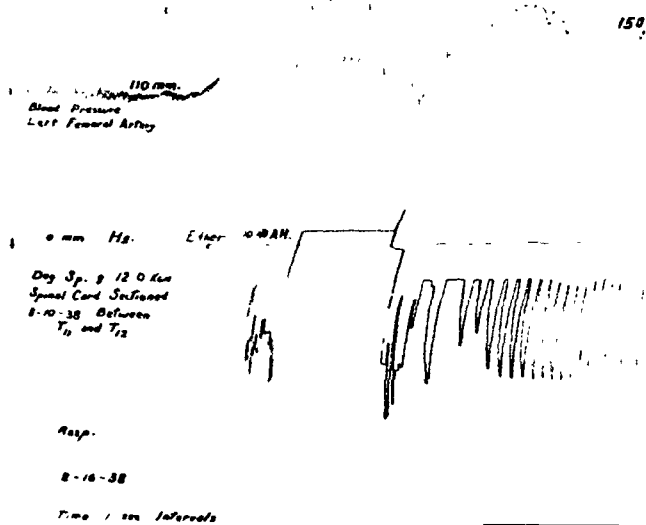 150
110 mm.
Blood Pressure
Left Femoral Artery
0 mm Hg. Ether AM.
Dog Sp. 12.0 Kgm
Spinal Cord Sectioned
8-10-38 Between
T11 and T12
Resp.
8-16-38
Time 1 sec Intervals